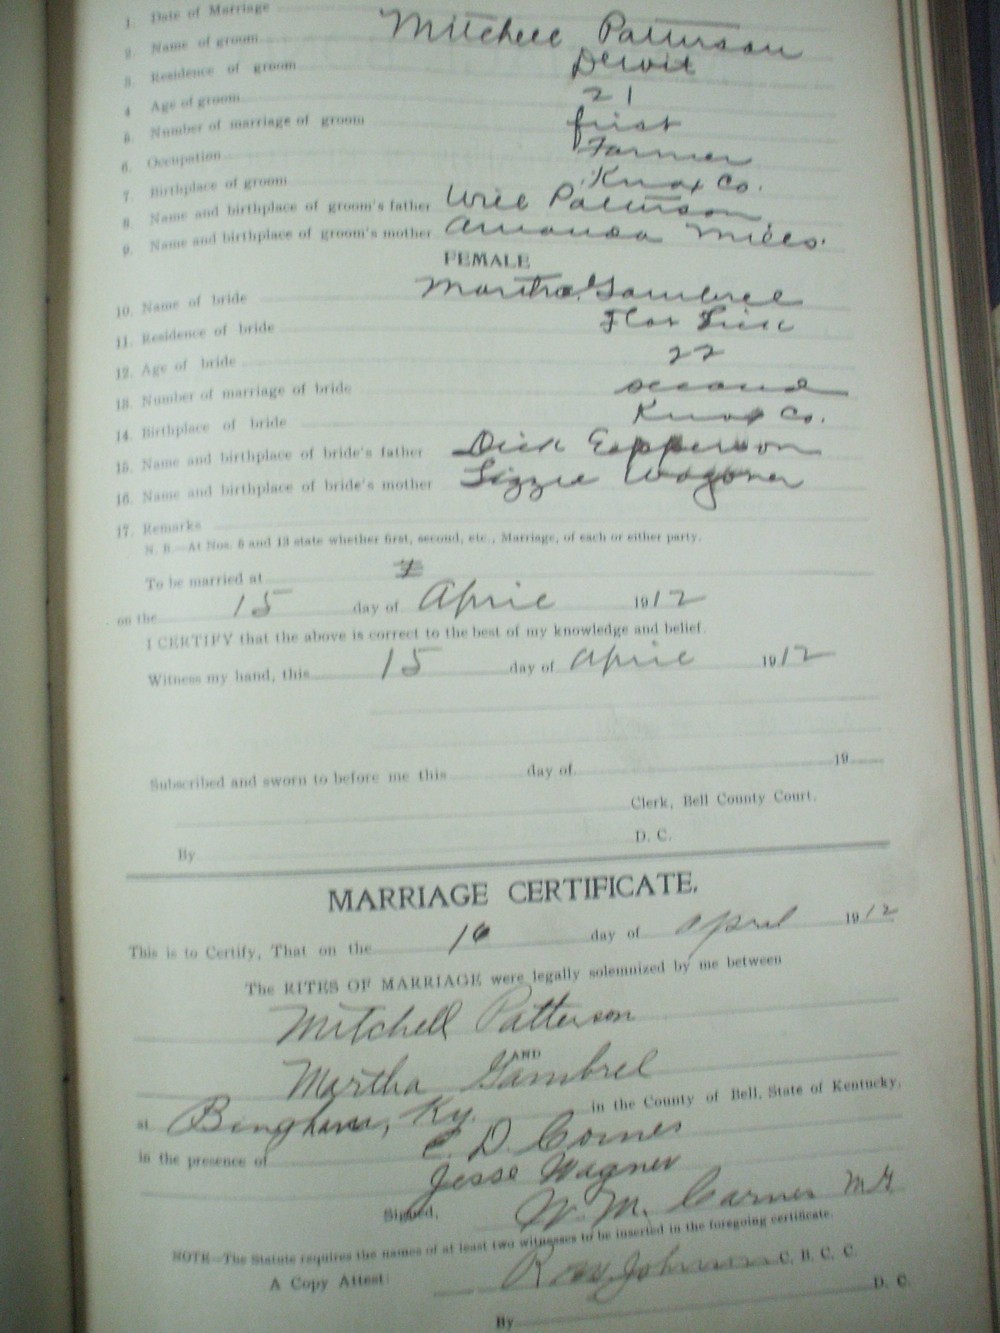 1. Date of Marriage
2. Name of groom Mitchell Patterson
3. Residence of groom
4 Age of groom 21
5. Number of marriage of groom first
6. Occupation Farmer
7. Birthplace of groom Knox Co.
8. Name and birthplace of groom's father Will Patterson
9. Name and birthplace of groom's mother Amanda Mills.
FEMALE
10. Name of bride Martha Gambrel
11. Residence of bride Flat Lick
12. Age of bride 22
13. Number of marriage of bride second
14. Birthplace of bride Knox Co.
15. Name and birthplace of bride's father Dick Epperson
16. Name and birthplace of bride's mother Lizzie Wagoner
17. Remarks
N. B.—At Nos. 5 and 13 state whether first, second, etc., Marriage, of each or either party.
To be married at
on the 15 day of April 1912
I CERTIFY that the above is correct to the best of my knowledge and belief.
Witness my hand, this 15 day of April 1912
Subscribed and sworn to before me this day of 19
Clerk, Bell County Court.
By D. C.
MARRIAGE CERTIFICATE.
This is to Certify, That on the 16 day of April 1912
The RITES OF MARRIAGE were legally solemnized by me between
Mitchell Patterson
AND
Martha Gambrel
at Bingham, Ky. in the County of Bell, State of Kentucky,
in the presence of C. D. Cornes
Jesse Wagner
Signed, W. M. Carnes
NOTE—The Statute requires the names of at least two witnesses to be inserted in the foregoing certificate.
A Copy Attest: R Johnson C. B. C. C.
By D. C.